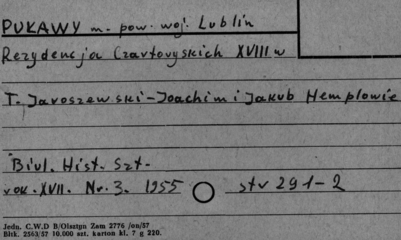 PUKAWY m. pow. woj. Lublin
Rezydencja Czartoryskich XVIII w
T. Jaroszewski-Joachim i Jakub Hemplowie
Biul. Hist. Szt.
rok. XVII. Nr. 3. 1955 str 291-2
Jedn. C.W.D B/Olsztyn Zam 2776 /on/57
Bltk. 2563/57 10.000 szt. karton kl. 7 g 220.